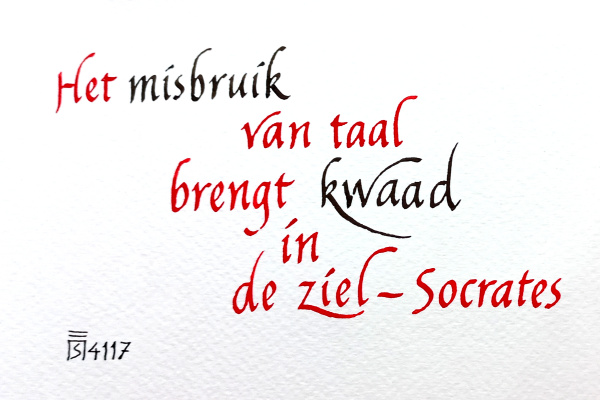 Het misbruik
van taal
brengt kwaad
in
de ziel – Socrates
4117